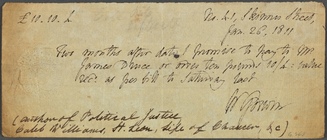 £10.10.4
No. 41, Skinner Street,
Jan. 26. 1811
Two months after date I promise to pay to Mr
James Dence or order ten pounds 10/4 value
rec'd as per bill to Saturday last
W Godwin
(author of Political Justice,
Caleb Williams, St. Leon, Life of Chaucer, &c)